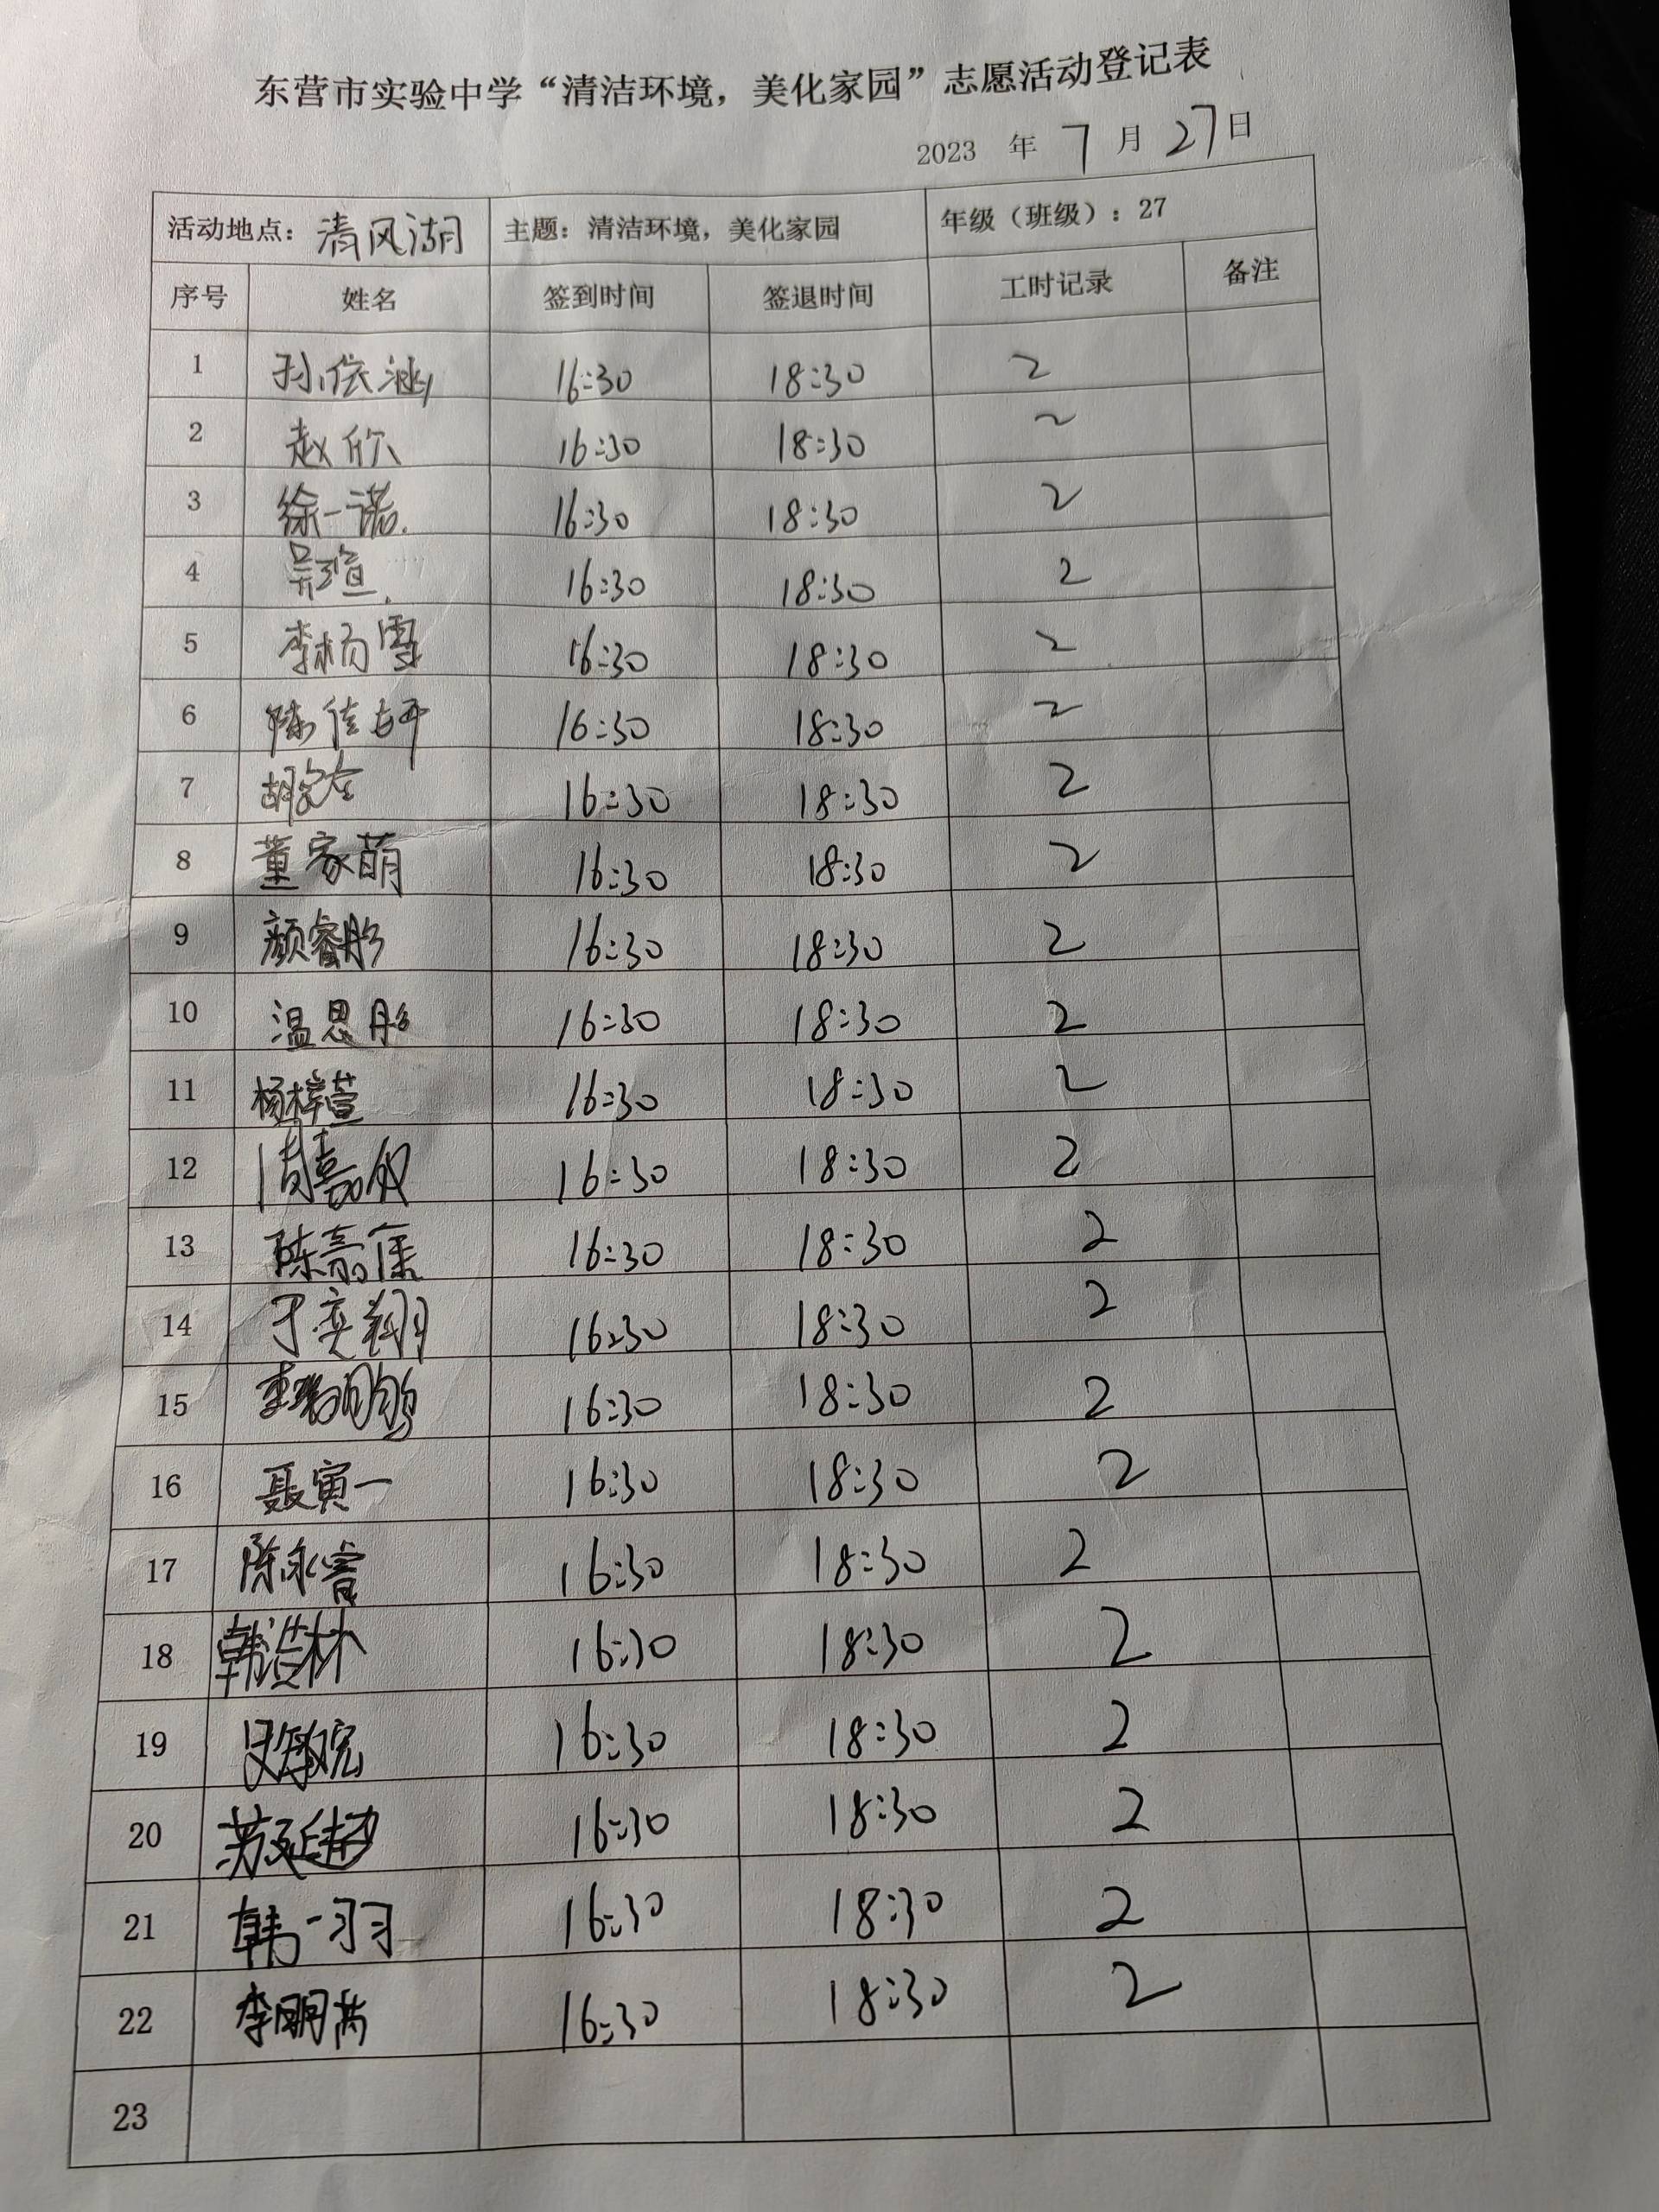 东营市实验中学“清洁环境，美化家园”志愿活动登记表
2023 年 7 月 27日
活动地点：清风湖 主题：清洁环境，美化家园 年级（班级）：27
序号 姓名 签到时间 签退时间 工时记录 备注
1 孙依涵 16:30 18:30 2
2 赵欣 16:30 18:30 2
3 徐一诺 16:30 18:30 2
4 吴瑄 16:30 18:30 2
5 李杨雪 16:30 18:30 2
6 陈佳妍 16:30 18:30 2
7 胡 16:30 18:30 2
8 董家萌 16:30 18:30 2
9 颜睿彤 16:30 18:30 2
10 温思彤 16:30 18:30 2
11 杨梓萱 16:30 18:30 2
12 周嘉 16:30 18:30 2
13 陈嘉 16:30 18:30 2
14 于奕翔 16:30 18:30 2
15 李 16:30 18:30 2
16 聂寅一 16:30 18:30 2
17 陈永睿 16:30 18:30 2
18 韩浩林 16:30 18:30 2
19 16:30 18:30 2
20 苏延超 16:30 18:30 2
21 韩一羽 16:30 18:30 2
22 李明 16:30 18:30 2
23